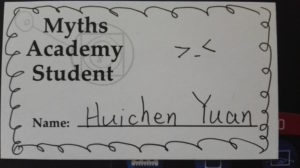 Myths
Academy
Student
>.<
Name: Huichen Yuan